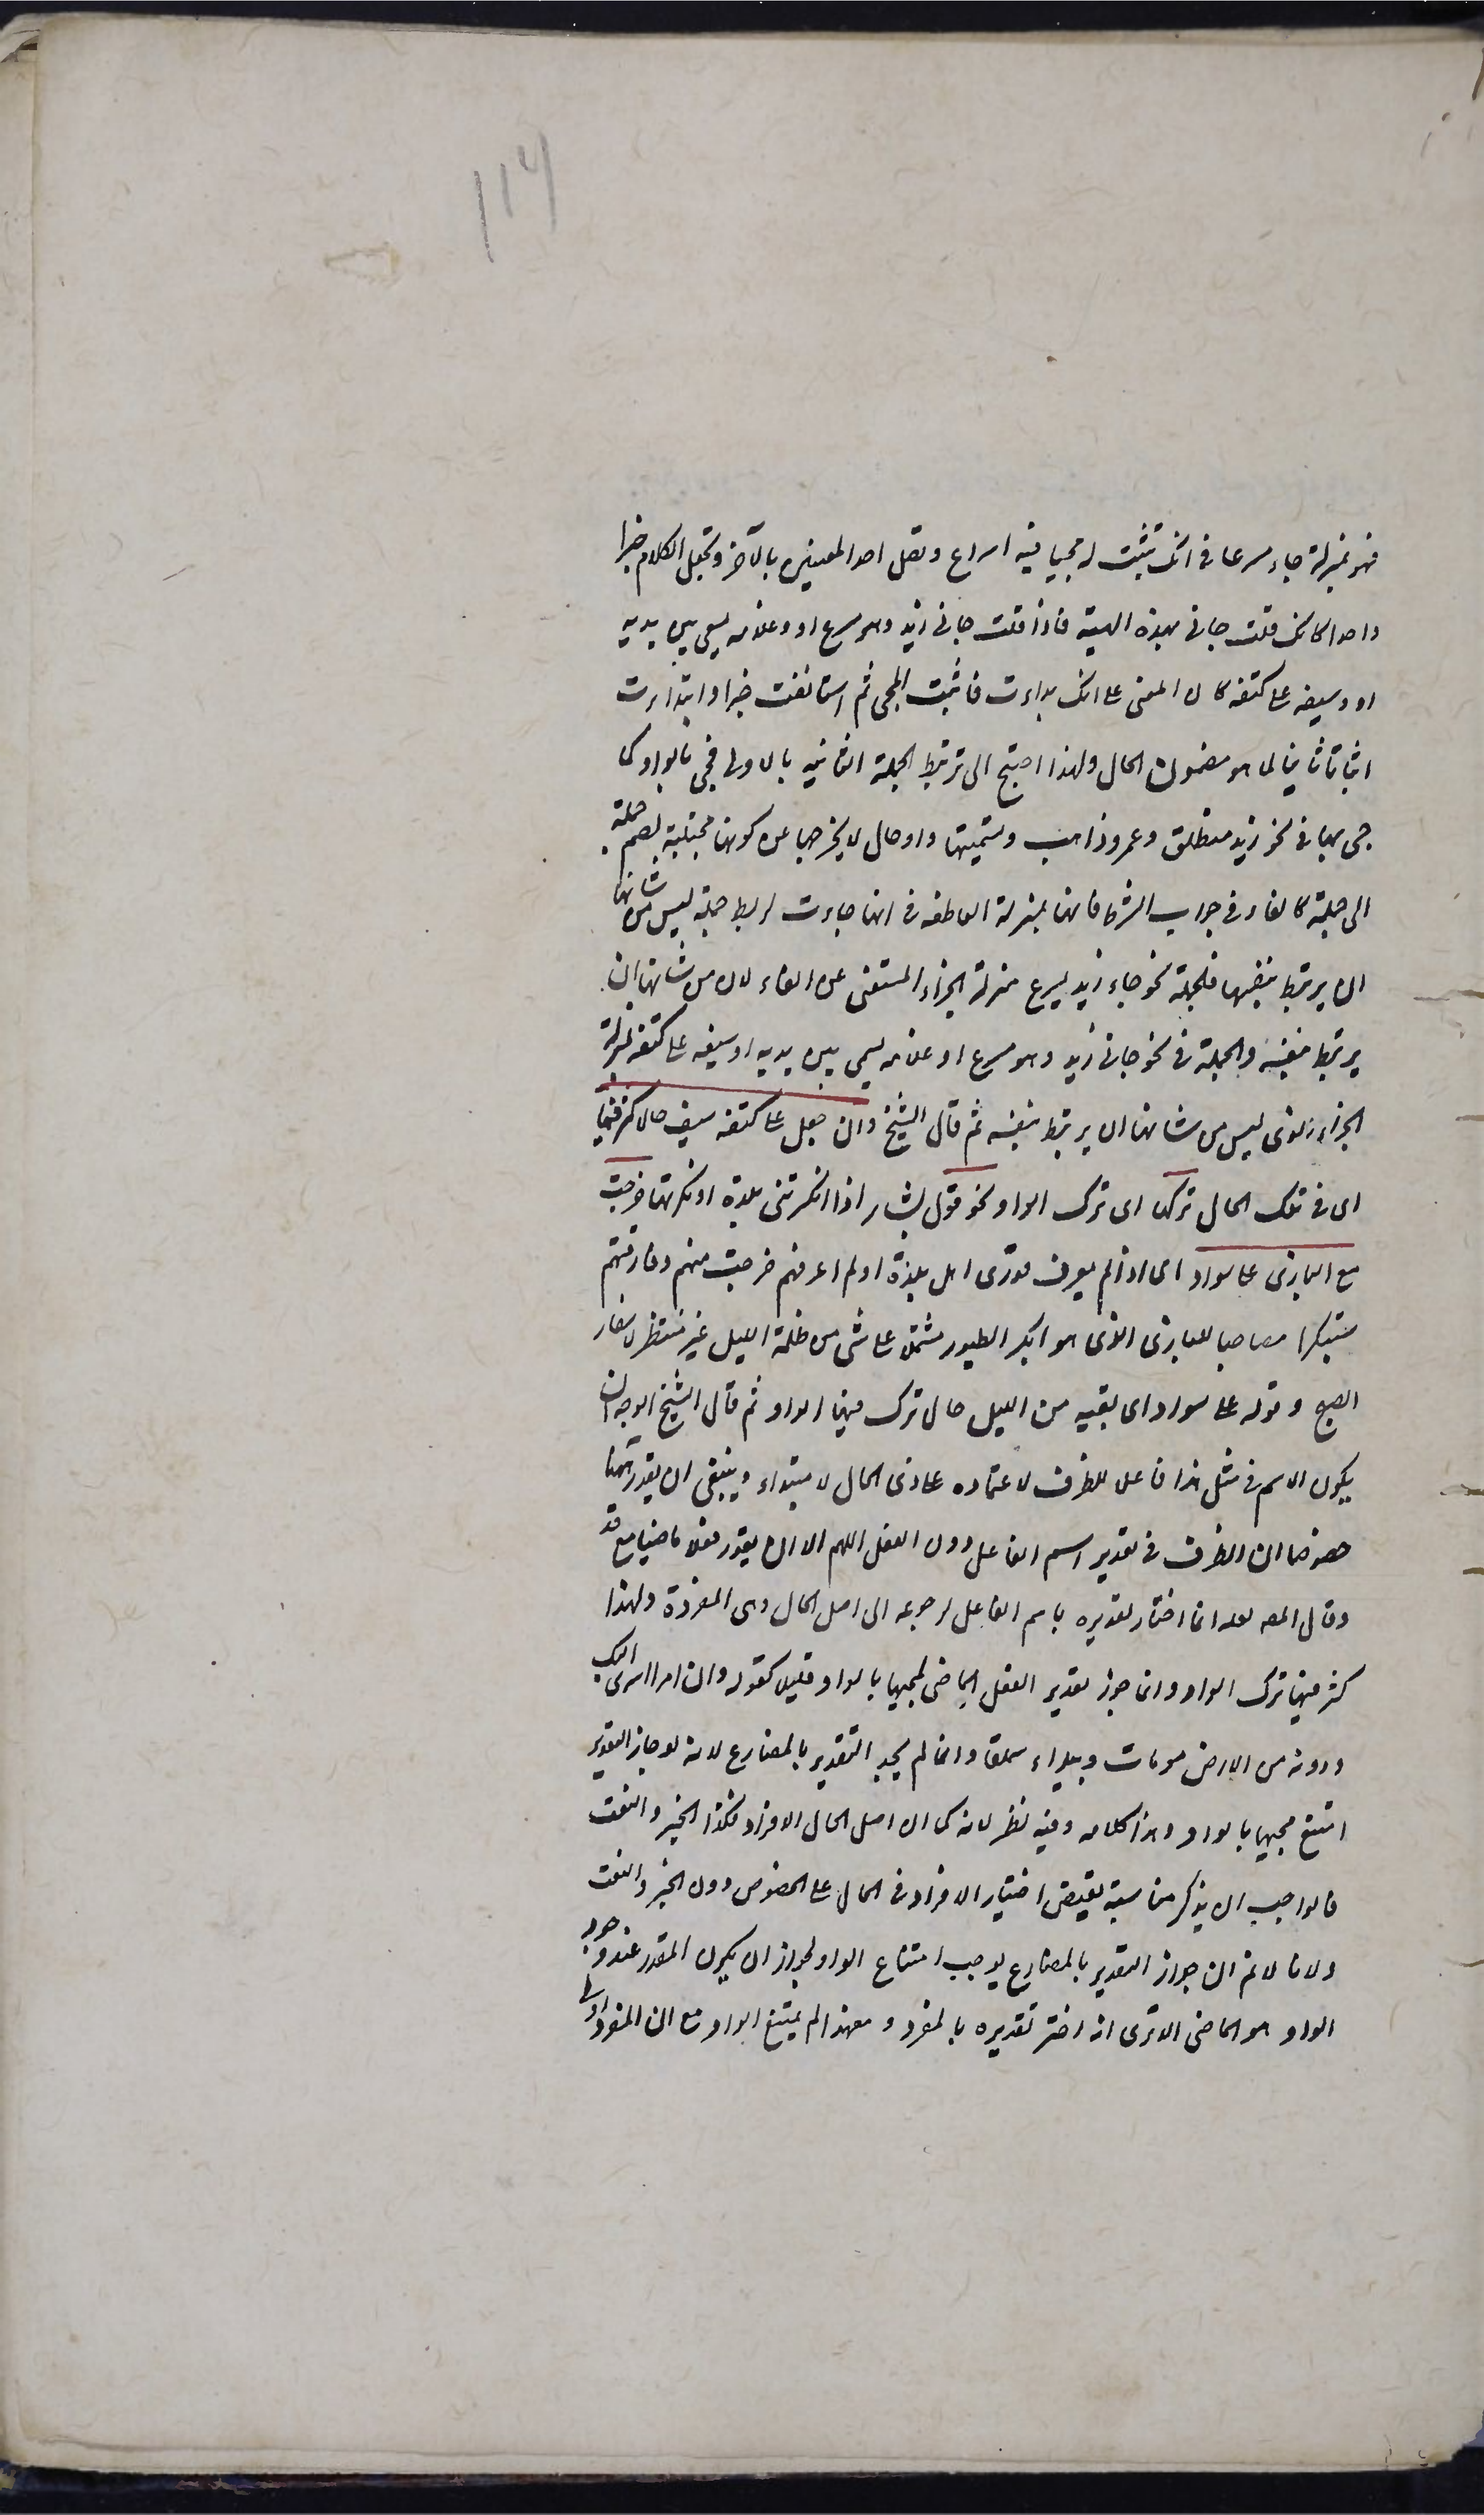 ١١٦
فهو بمنزلة جاء مسرعا فى انك تثبت له مجيا فيه اسراع وتصل احد المعنيين بالآخر وتجعل الكلام خبرا
واحدا كانك قلت جانى بهذه الهيئة فاذا قلت جانى زيد وهو مسرع او وغلامه يسعى بين يديه
او وسيفه على كتفه كان المعنى على انك بداءت فاثبت المجى ثم استانفت خبرا وابتداءت
اثباتا ثانيا لما هو مضمون الحال ولهذا احتيج الى ترتبط الجملة الثانيه بالاولى فجى بالواو كما
جى بها فى نحو زيد منطلق وعمرو ذاهب وتسميتها واو حال لا يخرجها عن كونها مجتلبة لضم جملة
الى جملة كالفاء فى جواب الشرط فانها بمنزلة العاطفه فى انها جاءت لربط جملة ليس من شانها
ان يرتبط بنفسها فلجملة نحو جاء زيد يسرع منزلة الجزاء المستغنى عن الفاء لان من شانها ان
يرتبط بنفسه والجملة فى نحو جانى زيد وهو مسرع او غلامه يسعى بين يديه او سيفه على كتفه بمنزلة
الجزاء الذى ليس من شانها ان يرتبط بنفسه ثم قال الشيخ وان جعل على كتفه سيف حالا كثر فيها
اى فى تلك الحال تركها اى ترك الواو نحو قول بشار اذا انكرتنى بلدة او نكرتها خرجت
مع البازى على سواد اى اذا لم يعرف قدرى اهل بلدة او لم اعرفهم خرجت منهم وفارقتهم
مبتكرا مصاحبا للبازى الذى هو ابكر الطيور مشتملا على شى من ظلمة الليل غير منتظر لاسفار
الصبح وقوله على سواد اى بقيه من الليل حال ترك فيها الواو ثم قال الشيخ الوجه ان
يكون الاسم فى مثل هذا فاعلا للظرف لاعتماده على ذى الحال لا مبتداء وينبغى ان يقدر ههنا
خصوصا ان الظرف فى تقدير اسم الفاعل دون الفعل اللهم الا ان يقدر فعلا ماضيا مع قد
وقال المصـ لعله انما اختار تقديره باسم الفاعل لرجوعه الى اصل الحال وهى المفردة ولهذا
كثر فيها ترك الواو وانما جوز تقدير الفعل الماضى لمجيها بالواو قليلا كقوله وان امرا اسرى اليك
ودونه من الارض موماة وبيداء سملق وانما لم يجز التقدير بالمضارع لانه لو جاز التقدير
امتنع مجيها بالواو وهذا كلامه وفيه نظر لانه كما ان اصل الحال الافراد فكذا الخبر والنعت
فالواجب ان يذكر مناسبة يقتضى اختيار الافراد فى الحال على الخصوص دون الخبر والنعت
ولانا لا نم ان جواز التقدير بالمضارع يوجب امتناع الواو لجواز ان يكون المقدر عند وجود
الواو هو الماضى الا ترى انه اختر تقديره بالمفرد ومعهذا لم يمتنع الواو مع ان المفرد اولى